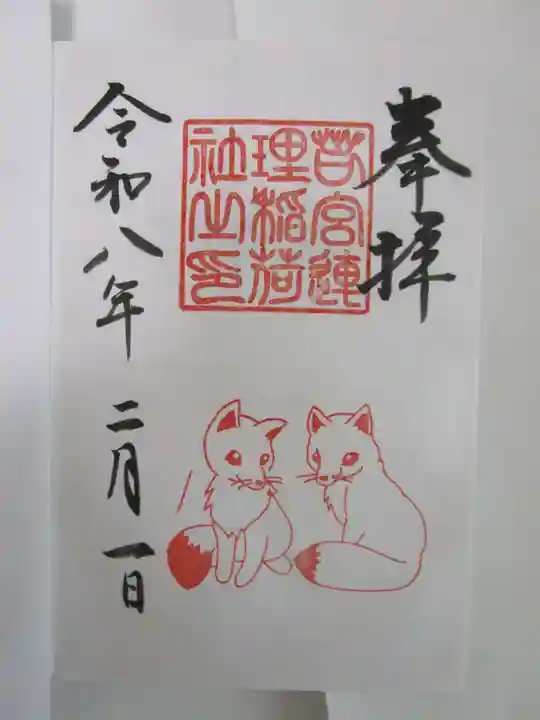 奉拝
苔宮連
理稲荷
社之印
令和八年 二月一日